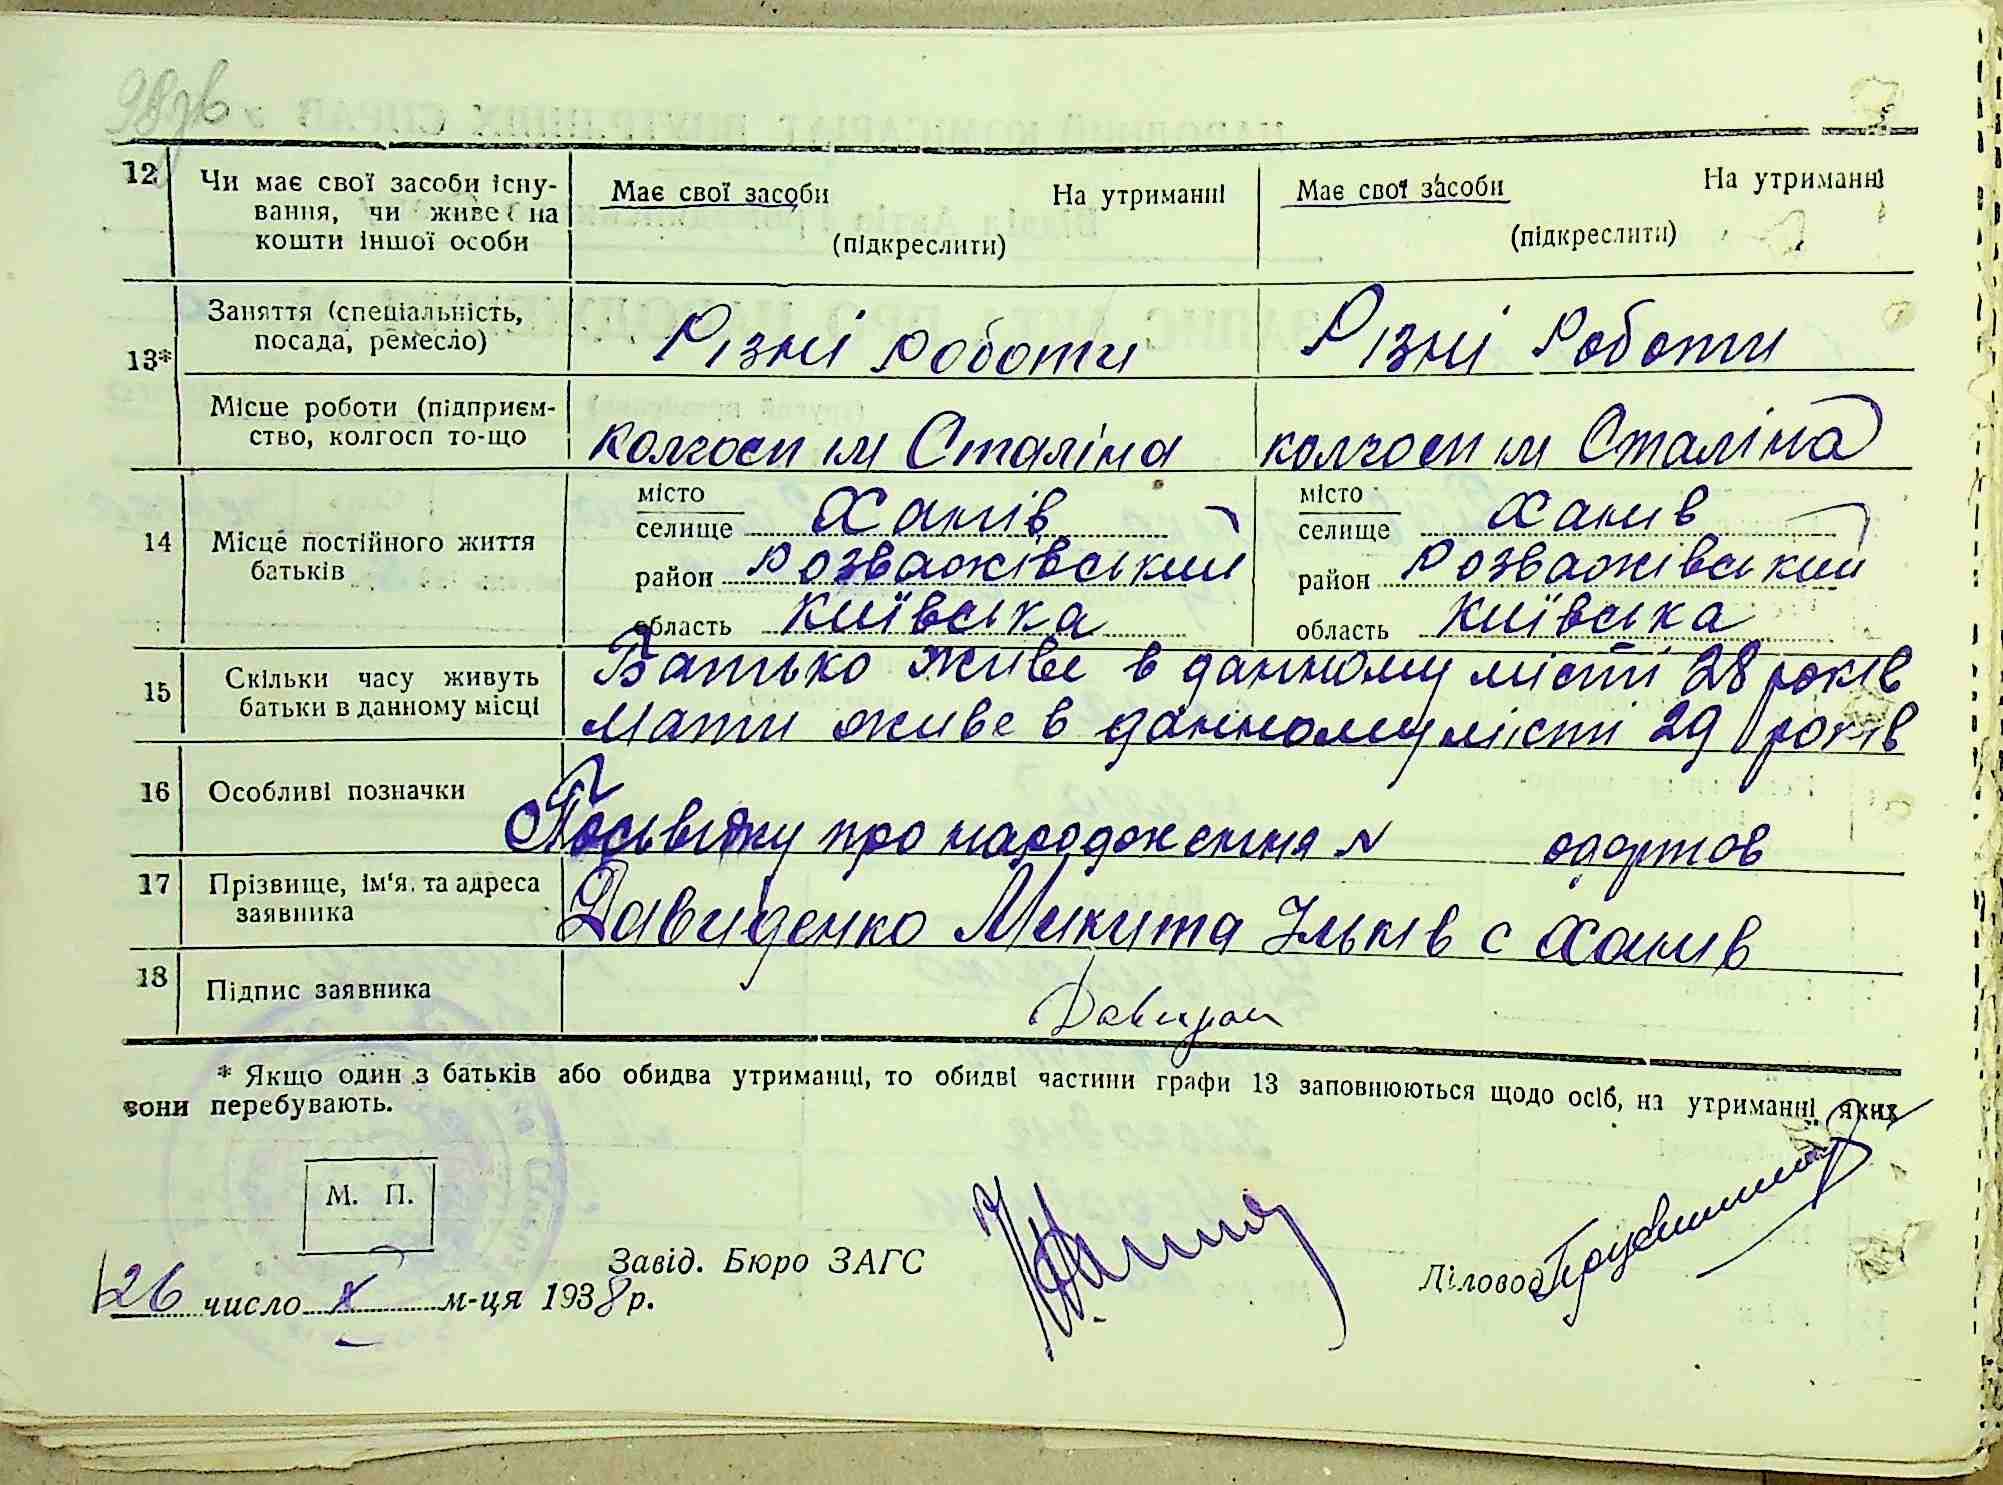 98зв.
12 Чи має свої засоби існу-
вання, чи живе на
кошти іншої особи
Має свої засоби На утриманні
(підкреслити)
Має свої засоби На утриманні
(підкреслити)
13*
Заняття (спеціальність,
посада, ремесло)
Різні роботи
Різні роботи
Місце роботи (підприєм-
ство, колгосп то-що
колгосп ім Сталіна
колгосп ім Сталіна
14 Місце постійного життя
батьків
місто
селище Ханів
район розважівський
область київська
місто
селище Ханив
район розважівський
область київська
15 Скільки часу живуть
батьки в данному місці
Батько живе в данному місті 28 років
Мати живе в данному місті 29 років
16 Особливі позначки
Посьвідку про народження N одержов
17 Прізвище, ім'я та адреса
заявника
Давиденко Микита Ільків с Ханив
18 Підпис заявника
* Якщо один з батьків або обидва утриманці, то обидві частини графи 13 заповнюються щодо осіб, на утриманні яких
вони перебувають.
М. П.
Завід. Бюро ЗАГС
Діловод
26 число X м-ця 1938 р.